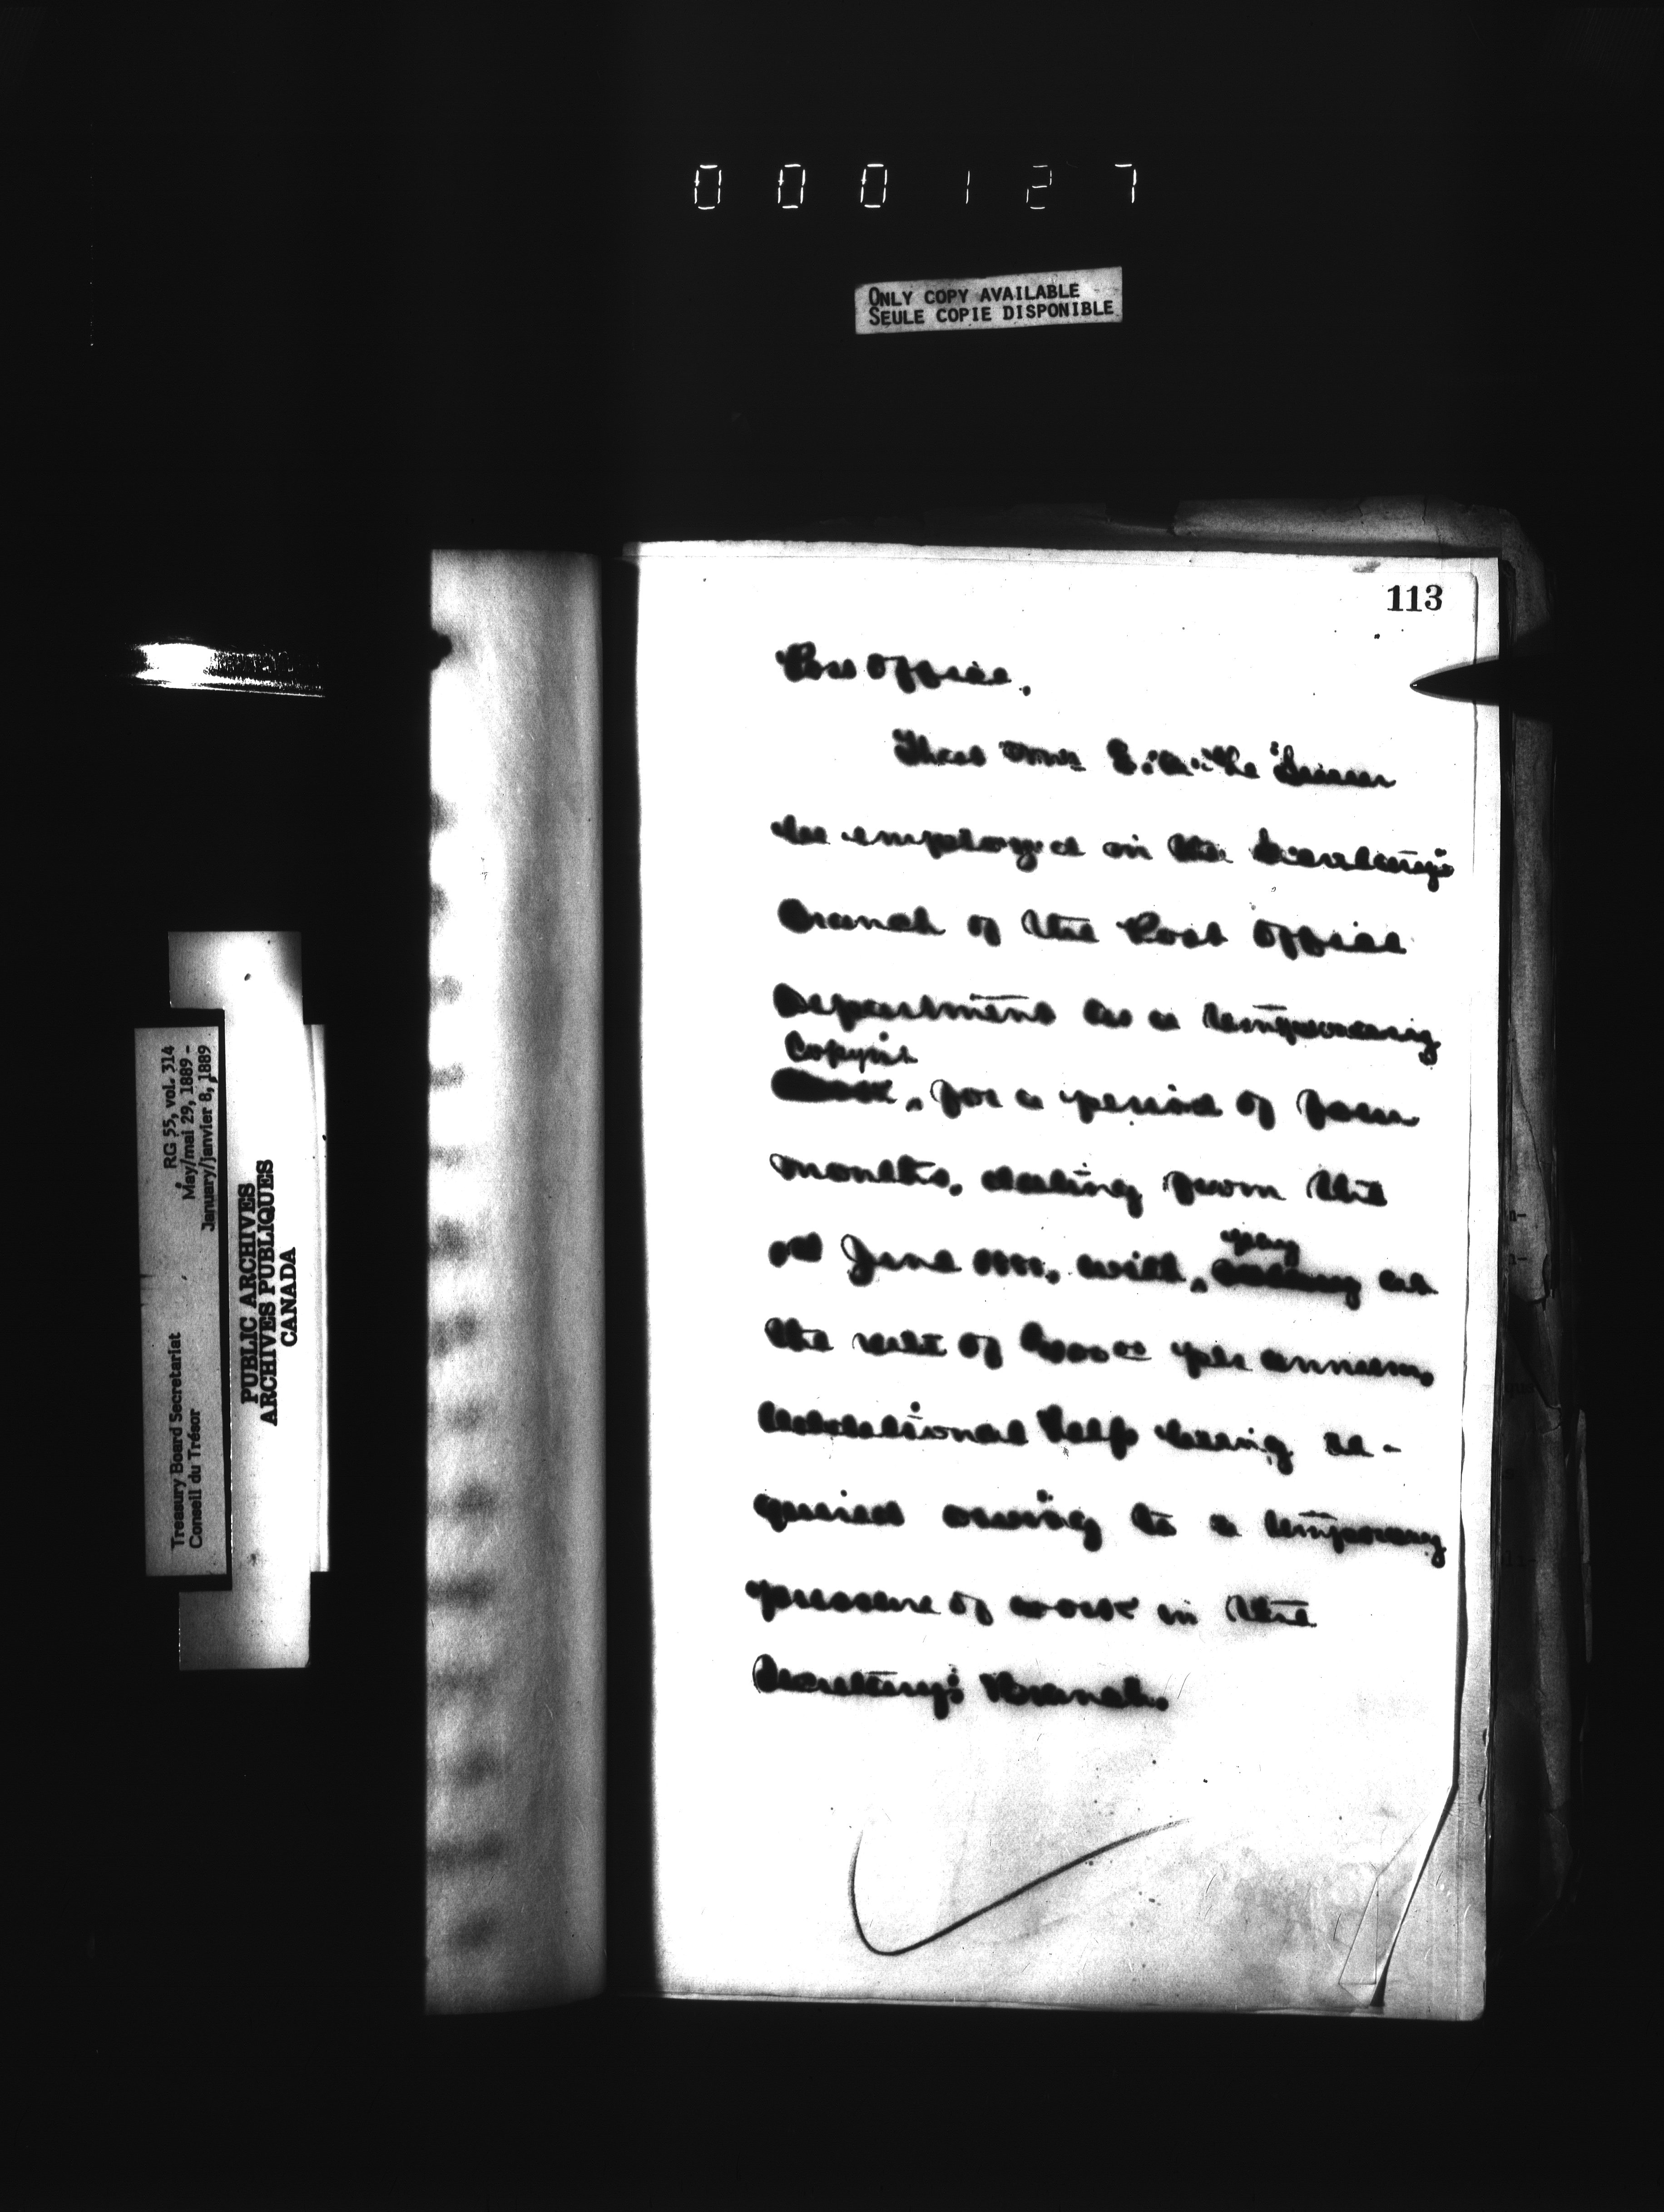 000127
ONLY COPY AVAILABLE
SEULE COPIE DISPONIBLE
113
Post Office.
That
be employed in the Secretary's
Branch of the Post Office
Department as a temporary
Copyist
for a period of four
months, dating from the
June with pay at
the rate of per annum,
additional help being re-
quired owing to a temporary
pressure of work in the
Secretary's Branch.
RG 55, vol. 314
May/mai 29, 1889 -
January/janvier 8, 1889
Treasury Board Secretariat
Conseil du Trésor
PUBLIC ARCHIVES
ARCHIVES PUBLIQUES
CANADA